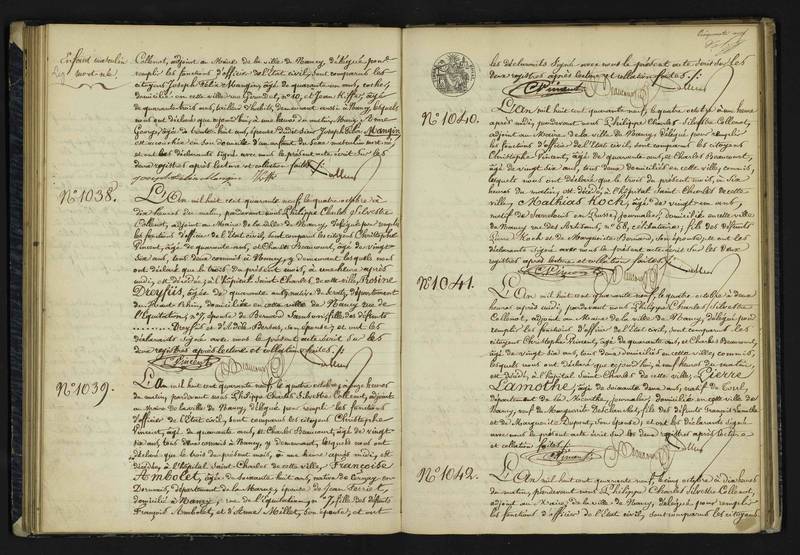 Enfant masculin
mort-né.
Collenot, adjoint au Maire de la ville de Nancy, délégué pour
remplir les fonctions d'officier de l'Etat civil, sont comparus les
citoyens Joseph Félix Mangin, âgé de quarante un ans, cocher,
domicilié en cette ville, rue n° 10, et Jean Kiffer, âgé
de quarante huit ans, tailleur d'habits, demeurant aussi à Nancy, lesquels
nous ont déclaré que aujourd'hui, à une heure du matin,
George, âgée de trente huit ans, épouse dudit Sieur Joseph Félix Mangin
est accouchée en son domicile d'un enfant du sexe masculin mort-né
et ont les déclarants signé avec nous le présent acte écrit sur les
deux registres après lecture et collation faites
N° 1038.
L'An mil huit cent quarante neuf, le quatre octobre à
dix heures du matin, pardevant nous Philippe Charles Silvestre
Collenot, adjoint au Maire de la ville de Nancy, délégué pour remplir
les fonctions d'officier de l'Etat civil, sont comparus les citoyens Christophe
Pincent, âgé de quarante ans, et Charles Beaucourt, âgé de vingt
six ans, tous deux commis à Nancy, y demeurant lesquels nous
ont déclaré que le trois du présent mois, à une heure après
midi, est décédée à l'hôpital Saint Charles de cette ville, Rosine
Dreyfus, âgée de quarante ans, native de département
du Haut Rhin, domiciliée en cette ville de Nancy rue de
l'Equitation, n° 7, épouse de Bernard Samson, fille des défunts
Dreyfus et d'Adèle son épouse; et ont les
déclarants signé avec nous le présent acte écrit sur les
deux registres après lecture et collation faites
N° 1039.
L'An mil huit cent quarante neuf, le quatre octobre, à onze heures
du matin, pardevant nous Philippe Charles Silvestre Collenot, adjoint
au Maire de la ville de Nancy, délégué pour remplir les fonctions
d'officier de l'Etat civil, sont comparus les citoyens Christophe
Pincent, âgé de quarante ans, et Charles Beaucourt, âgé de vingt
six ans, tous deux commis à Nancy, y demeurant, lesquels nous ont
déclaré que le trois du présent mois, à une heure après midi, est
décédée, à l'hôpital Saint Charles de cette ville, Françoise
Ambolet, âgée de soixante huit ans, native de
Dormont, département de la Marne, épouse de Jean
domicilié à Nancy, rue de l'Equitation, n° 7, fille des défunts
François Ambolet, et d'Anne Millet, son épouse; et ont
les déclarants signé avec nous le présent acte écrit sur les
deux registres après lecture et collation faites
N° 1040.
L'An mil huit cent quarante neuf, le quatre octobre à une heure
après midi, pardevant nous Philippe Charles Silvestre Collenot,
adjoint au Maire de la ville de Nancy, délégué pour remplir
les fonctions d'officier de l'Etat civil, sont comparus les citoyens
Christophe Pincent, âgé de quarante ans, et Charles Beaucourt,
âgé de vingt six ans, tous deux domiciliés en cette ville, commis,
lesquels nous ont déclaré que le trois du présent mois, à six
heures du matin, est décédé, à l'hôpital Saint Charles de cette
ville, Mathias Koch, âgé de vingt un ans,
natif de en Prusse, journalier, domicilié en cette ville
de Nancy rue des Artisans, n° 68, célibataire; fils des défunts
Pierre Koch et de Marguerite son épouse, et ont les
déclarants signé avec nous le présent acte écrit sur les deux
registres après lecture et collation faites
N° 1041.
L'An mil huit cent quarante neuf, le quatre octobre à deux
heures après midi, pardevant nous Philippe Charles Silvestre
Collenot, adjoint au Maire de la ville de Nancy, délégué pour
remplir les fonctions d'officier de l'Etat civil, sont comparus les
citoyens Christophe Pincent, âgé de quarante ans, et Charles Beaucourt,
âgé de vingt six ans, tous deux domiciliés en cette ville, commis,
lesquels nous ont déclaré que aujourd'hui, à neuf heures du matin,
est décédé, à l'hôpital Saint Charles de cette ville, Pierre
Lamothe, âgé de soixante deux ans, natif de Toul,
département de la Meurthe, journalier, domicilié en cette ville de
Nancy, veuf de Marguerite fils des défunts François Lamothe
et de Marguerite Dupont, son épouse; et ont les déclarants signé
avec nous le présent acte écrit sur les deux registres après lecture
et collation faites
N° 1042.
L'An mil huit cent quarante neuf, le cinq octobre à dix heures
du matin, pardevant nous Philippe Charles Silvestre Collenot,
adjoint au Maire de la ville de Nancy, délégué pour remplir
les fonctions d'officier de l'Etat civil, sont comparus les citoyens